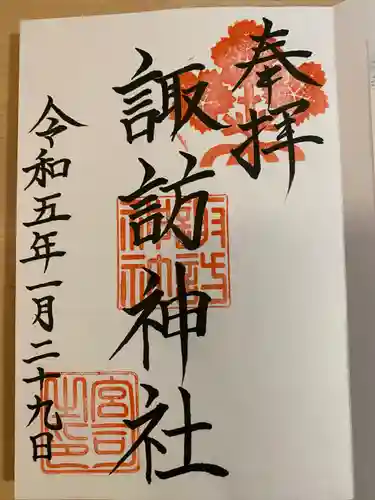 奉拝
諏訪神社
令和五年一月二十九日
諏訪神社
宮司之印